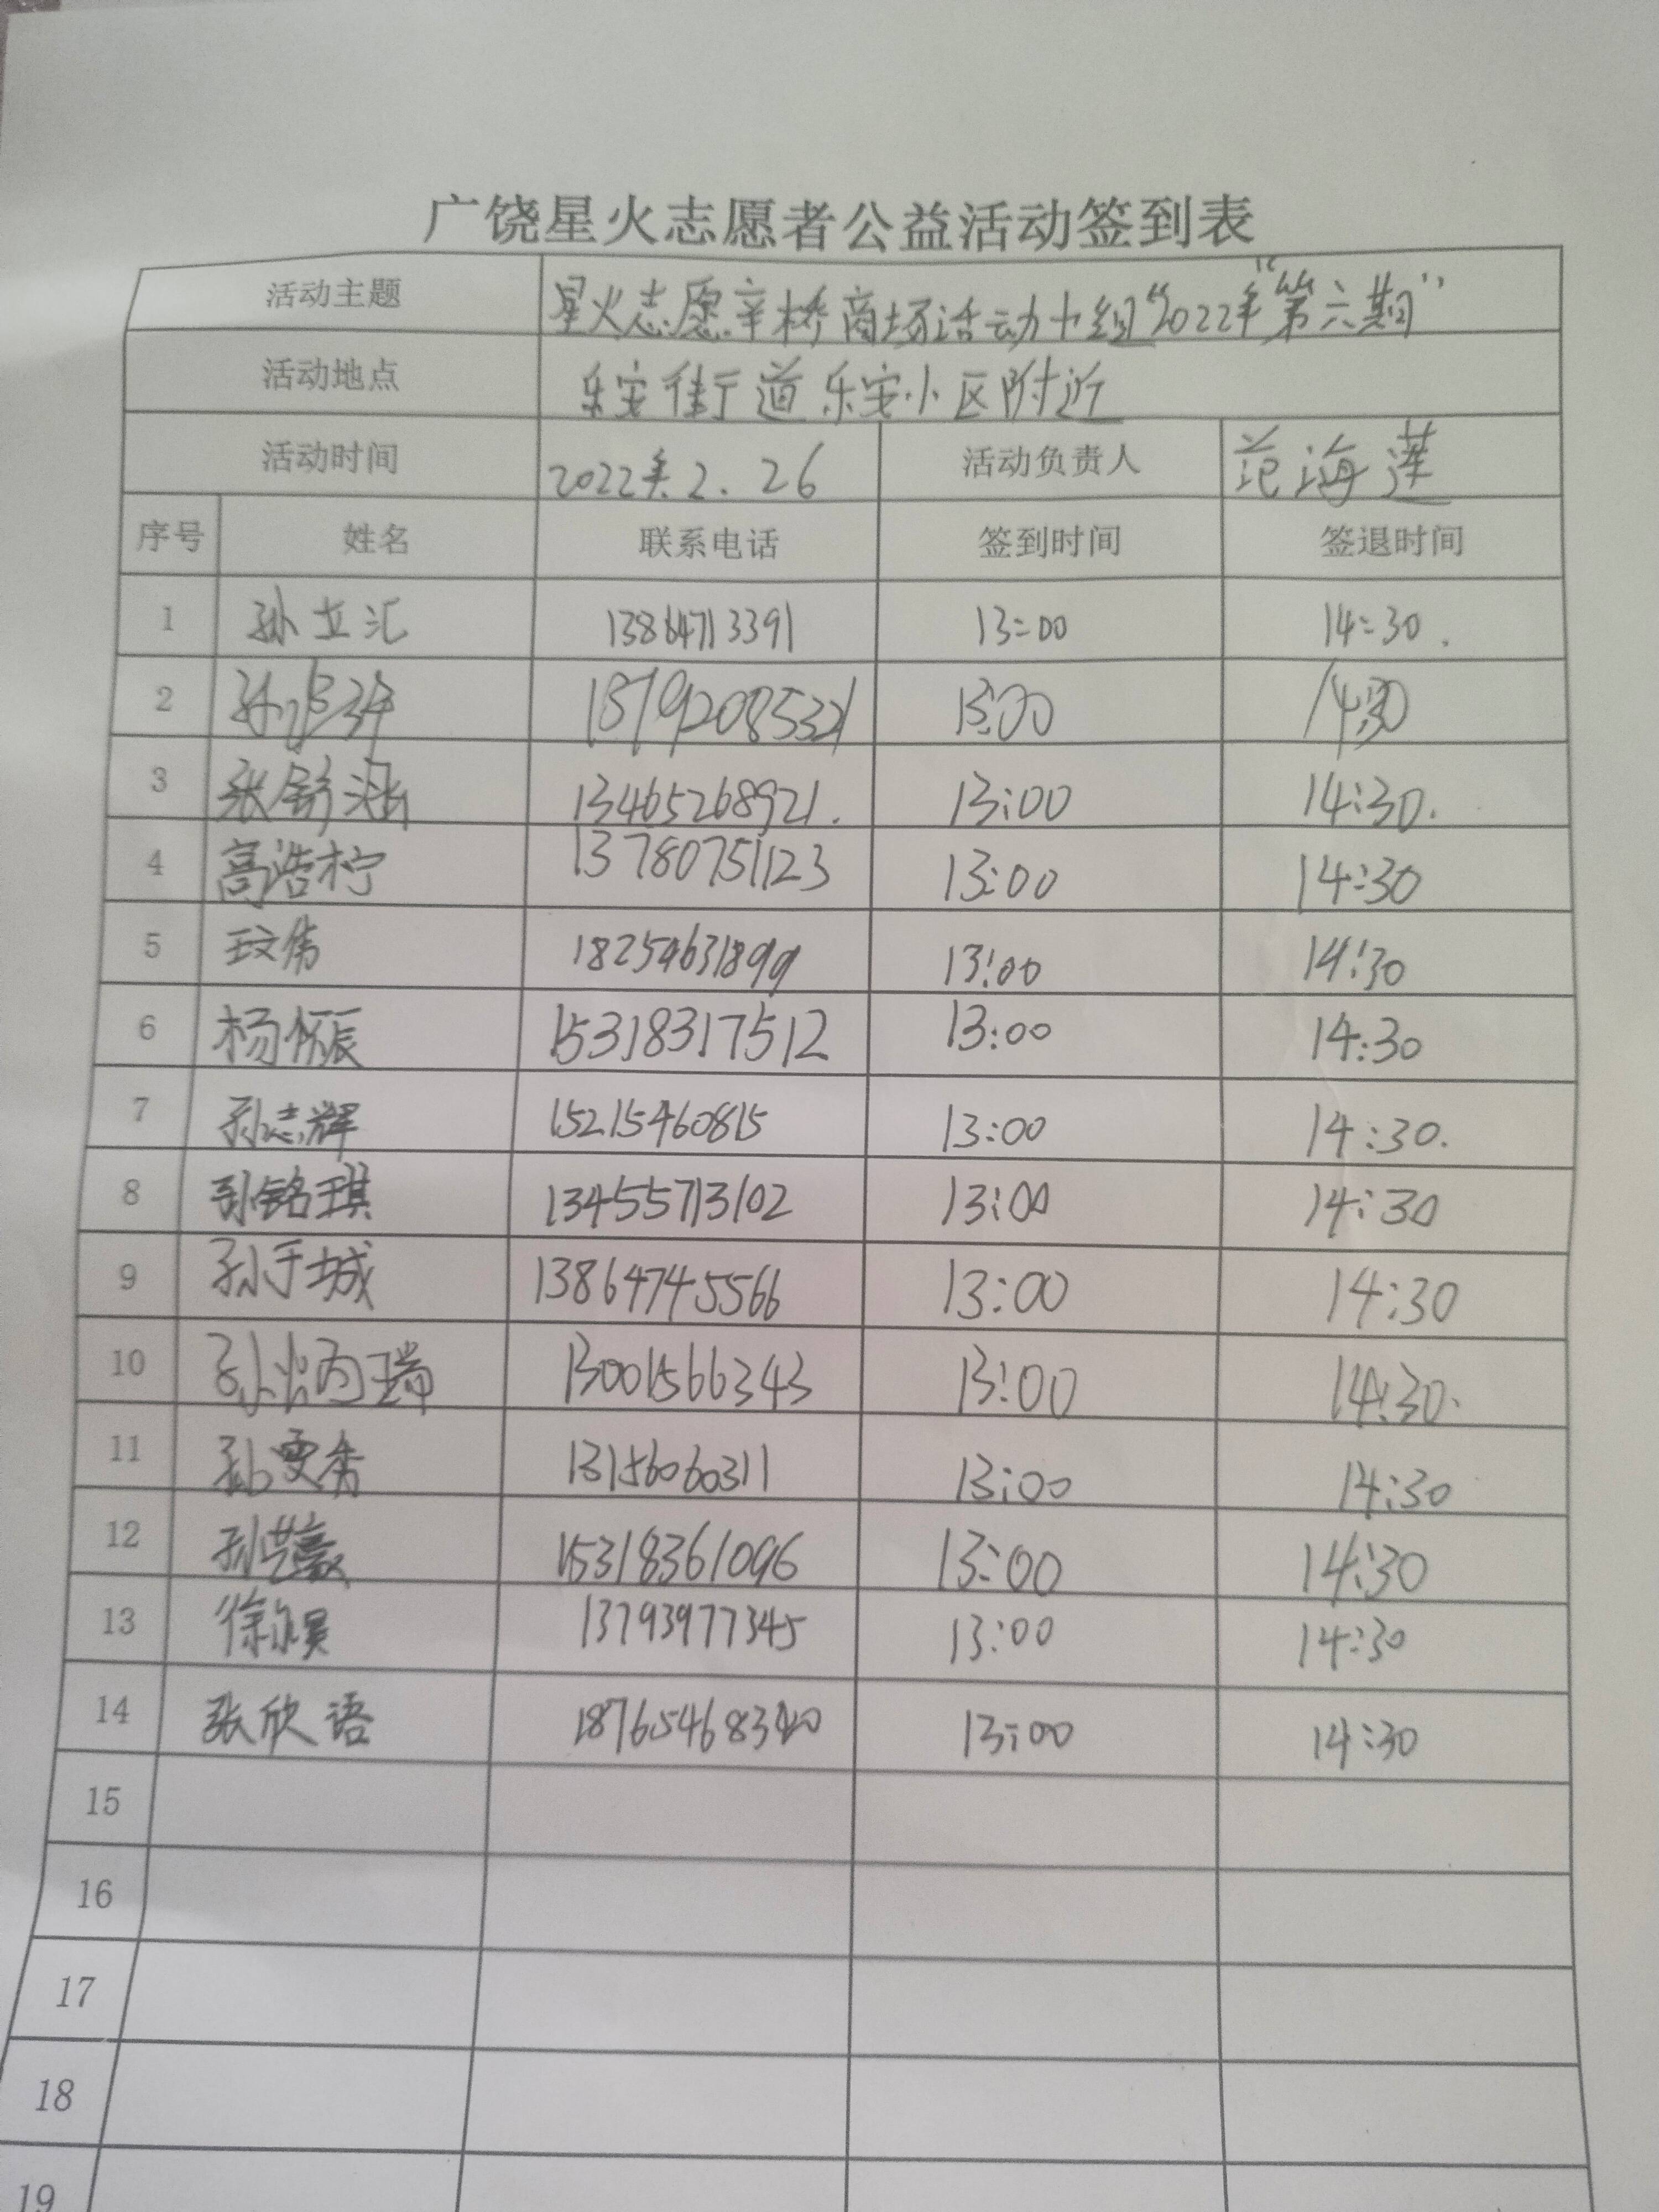 广饶星火志愿者公益活动签到表
活动主题 星火志愿辛桥商场活动小组“2022年“第六期”
活动地点 乐安街道乐安小区附近
活动时间 2022年2.26 活动负责人 范海莲
序号 姓名 联系电话 签到时间 签退时间
1 孙立汇 13864713391 13:00 14:30.
2 孙 18792085321 13:00 14:30
3 张舒涵 13465268921. 13:00 14:30.
4 高浩柠 13780751123 13:00 14:30
5 玟伟 18254631899 13:00 14:30
6 杨怀辰 15318317512 13:00 14:30
7 孙志辉 15215460815 13:00 14:30.
8 孙铭琪 13455713102 13:00 14:30
9 孙于城 13864745566 13:00 14:30
10 孙炳瑞 13001566343 13:00 14:30.
11 孙雯秀 13156060311 13:00 14:30
12 孙艺豪 15318361096 13:00 14:30
13 徐 13793977345 13:00 14:30
14 张欣语 13:00 14:30
15
16
17
18
19